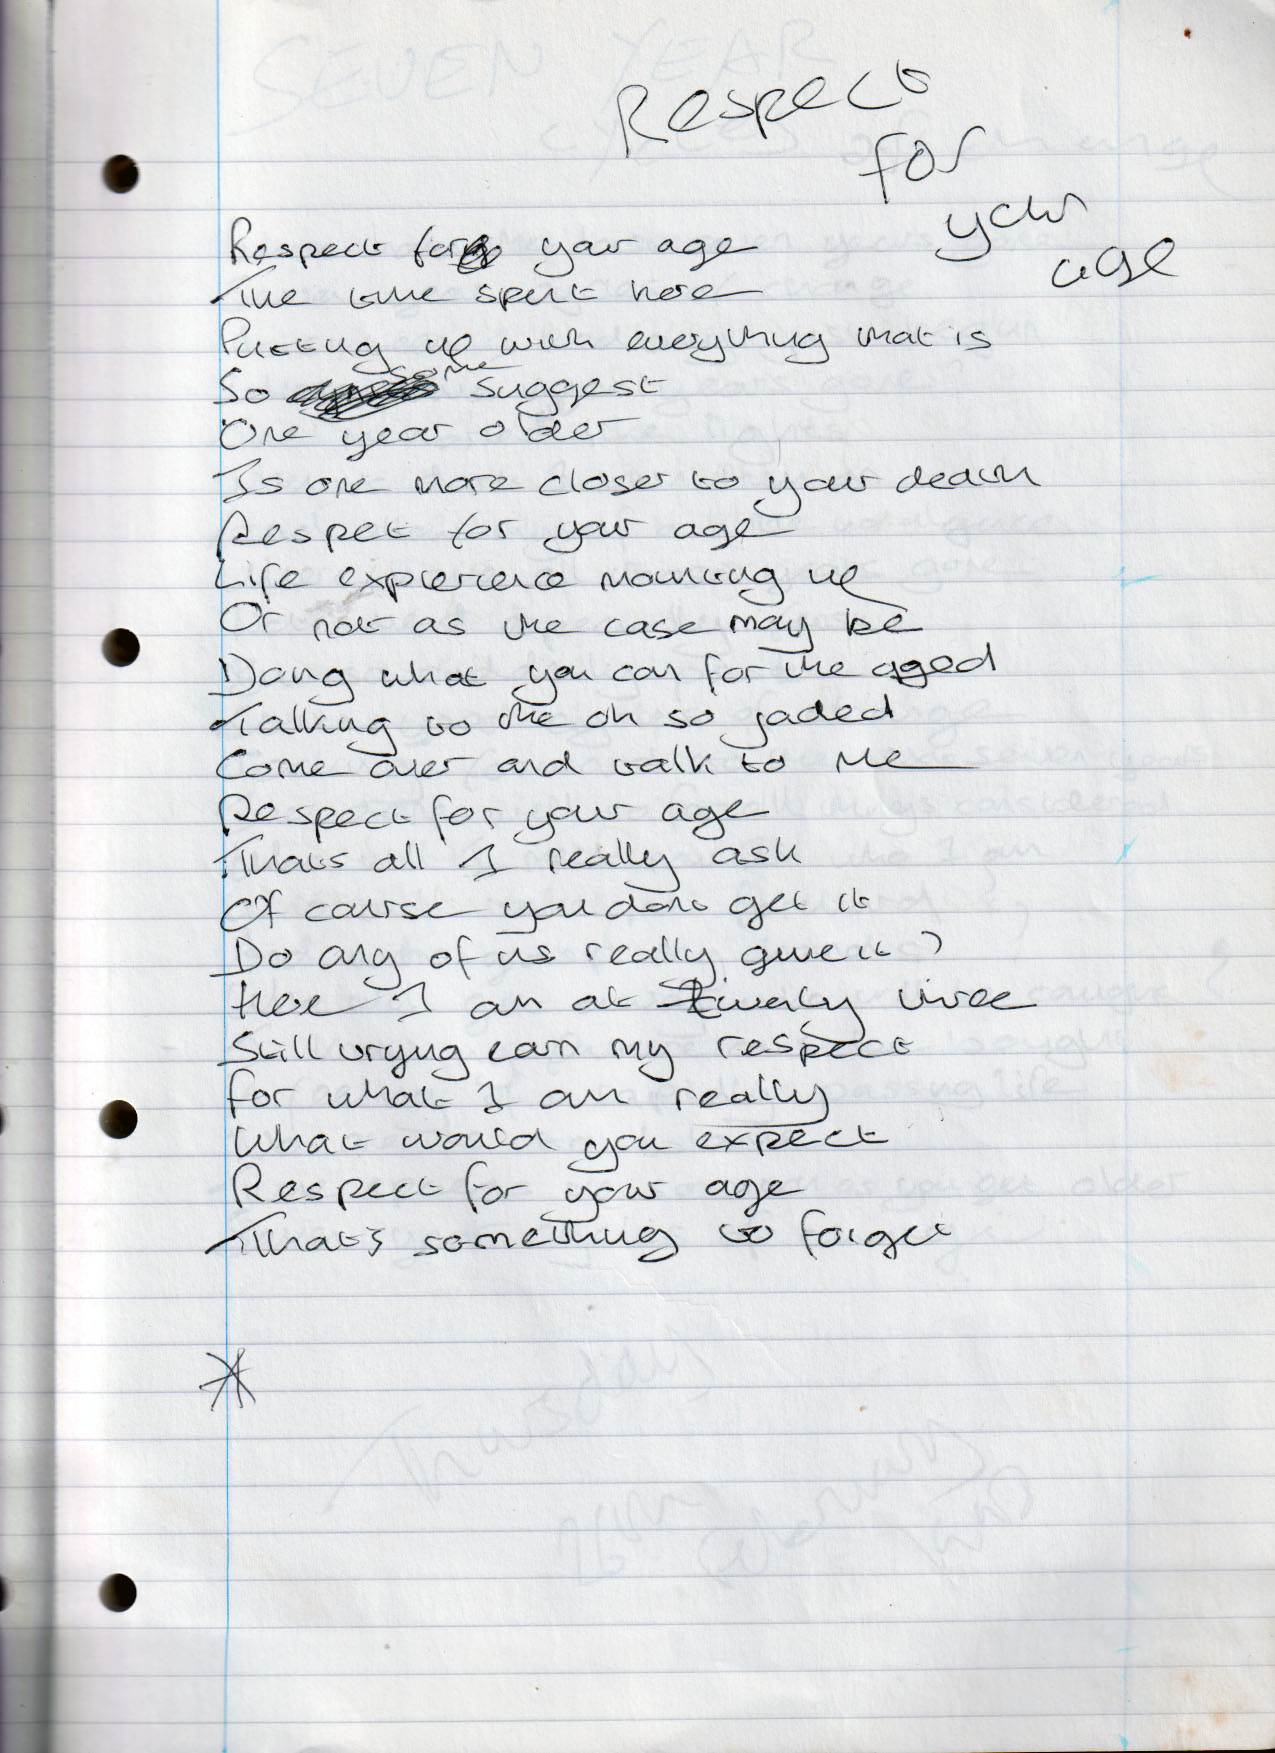 Respect
for
your
age
Respect for your age
The time spent here
Putting up with everything that is
So some suggest
One year older
Is one more closer to your death
Respet for your age
Life exprerience mounting up
Or not as the case may be
Doing what you can for the aged
Talking to the oh so jaded
Come over and talk to me
Respect for your age
Thats all I really ask
Of course you dont get it
Do any of us really give it?
Here I am at twenty three
Still trying earn my respect
for what I am really
What would you expect
Respect for your age
That's something to forget
*